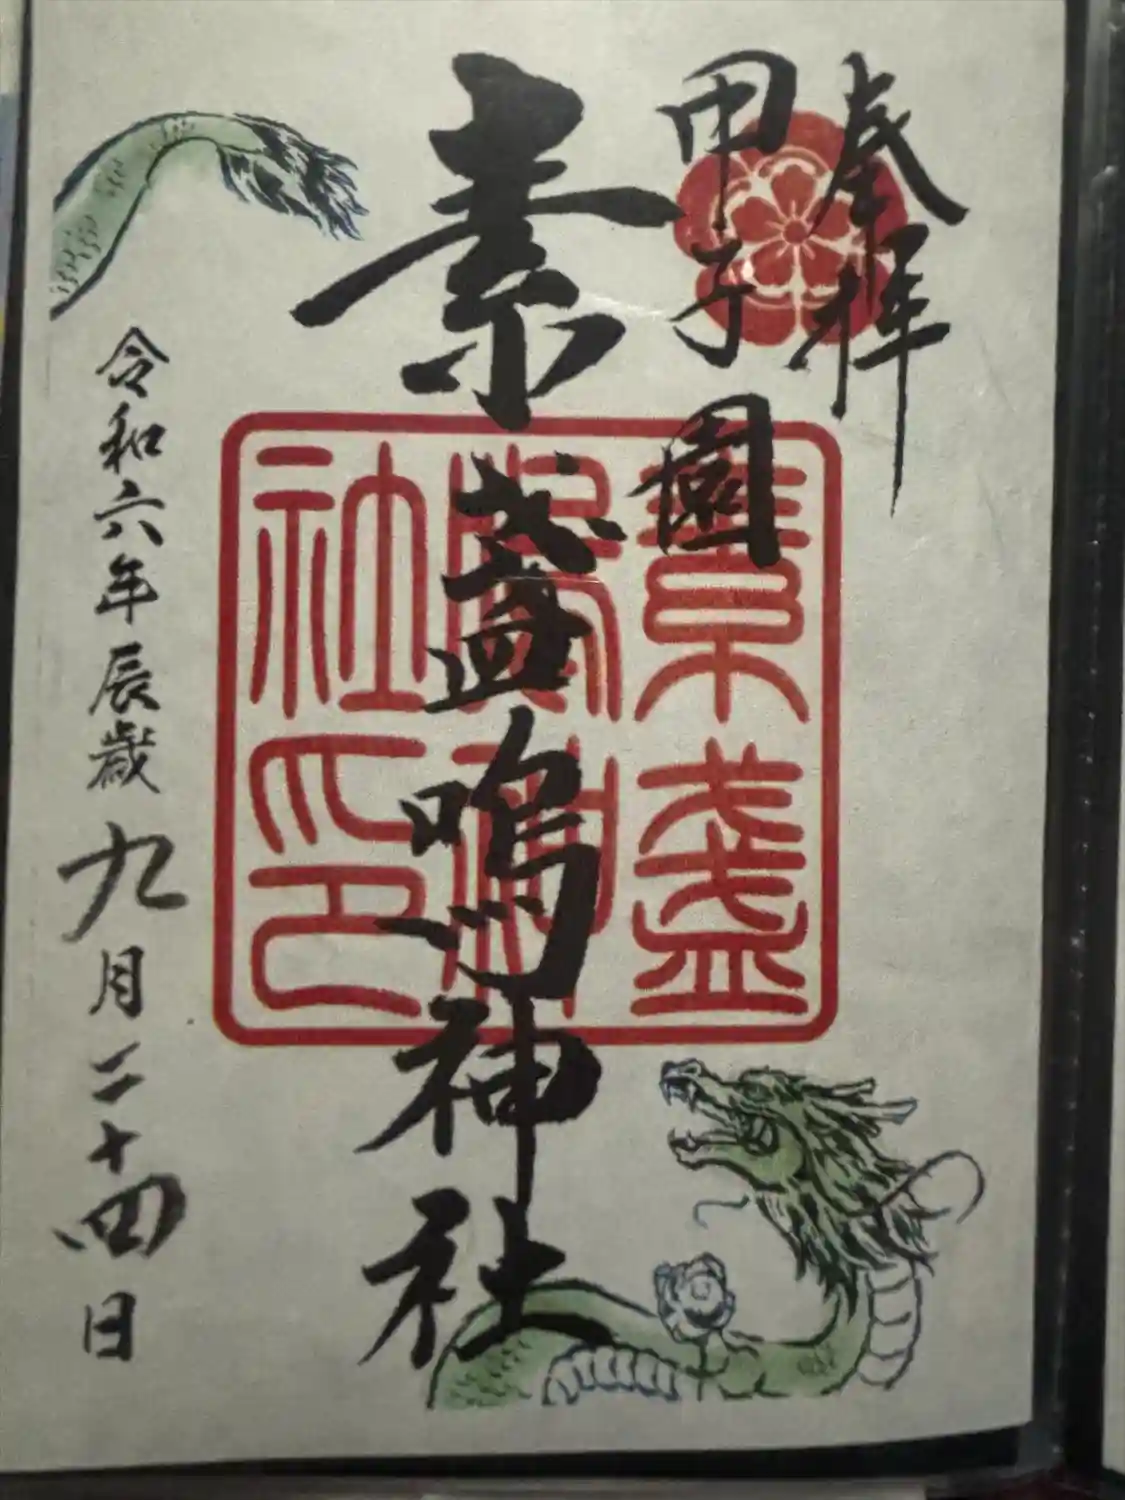 奉拝
甲子園
素盞嗚神社
素盞
嗚神
社印
令和六年辰歳九月二十四日